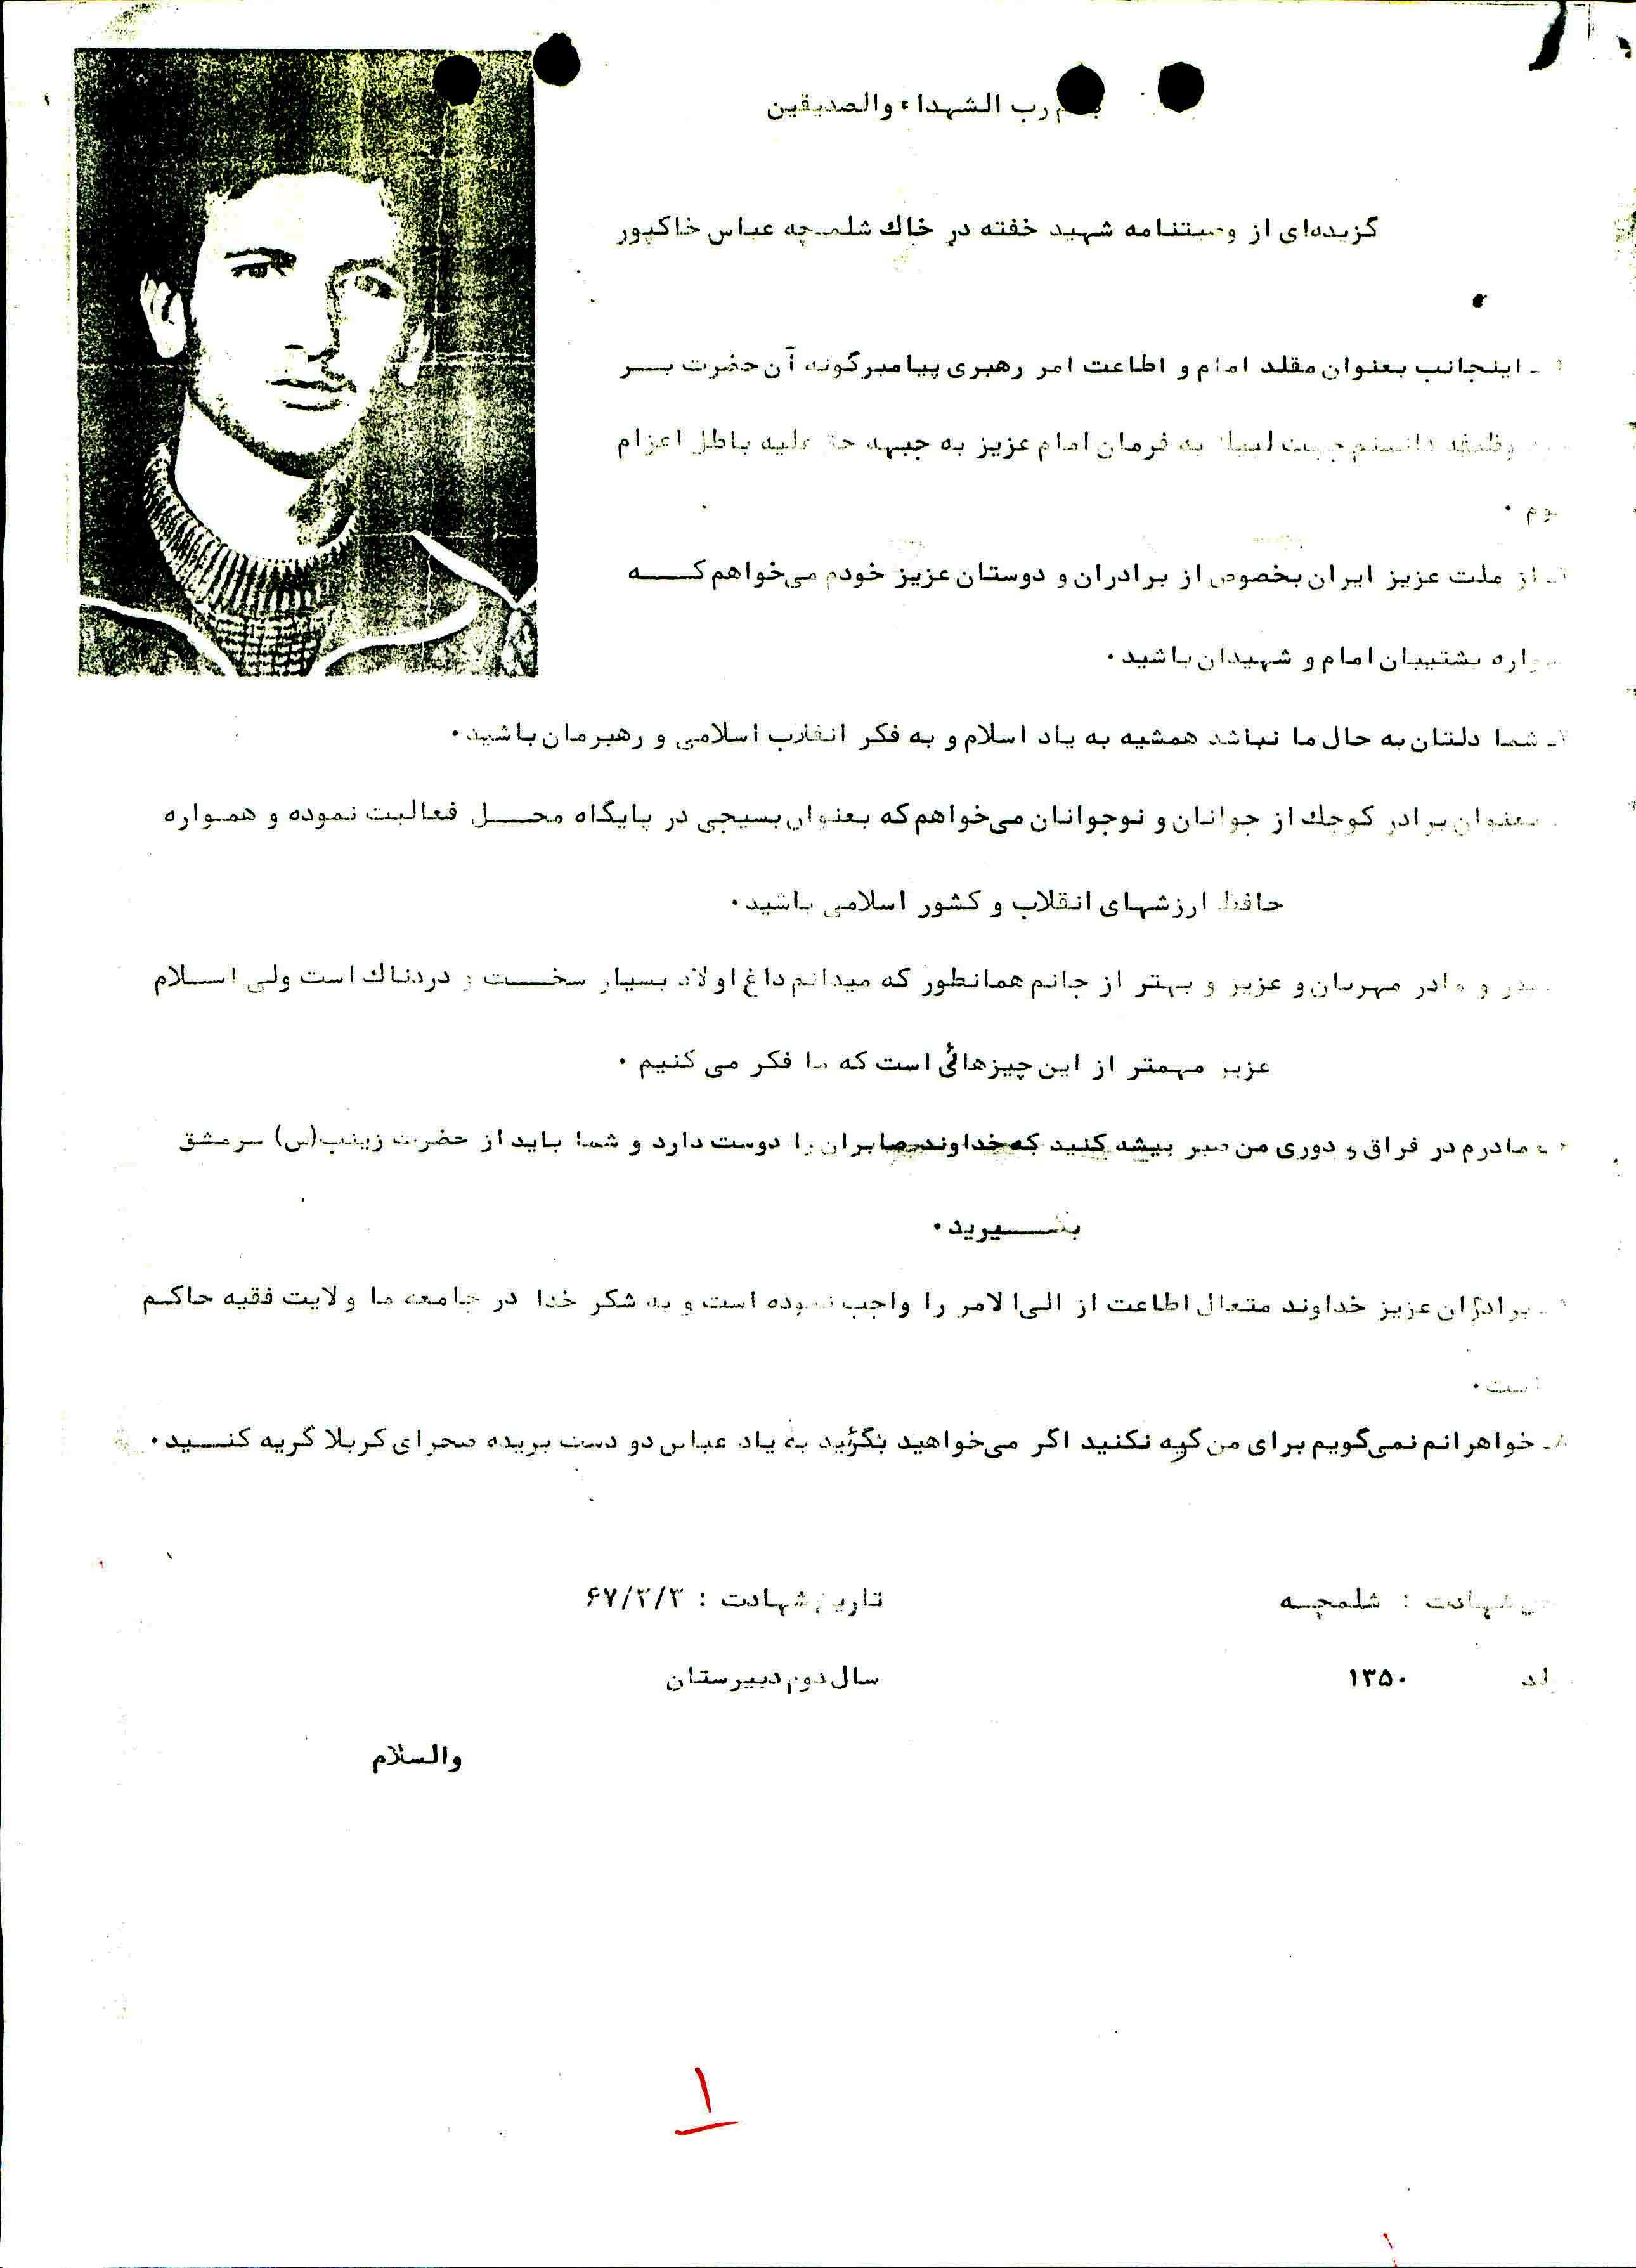 رب الشهداء والصدیقین
گزیده‌ای از وصیتنامه شهید خفته در خاك شلمچه عباس خاکپور
ـ اینجانب بعنوان مقلد امام و اطاعت امر رهبری پیامبرگونه آن حضرت بــر
وظیفه دانستم جهت لبیك به فرمان امام عزیز به جبهه حق علیه باطل اعزام
ـ از ملت عزیز ایران بخصوص از برادران و دوستان عزیز خودم می‌خواهم کـــه
پشتیبان امام و شهیدان باشید.
ـ شما دلتان به حال ما نباشد همشیه به یاد اسلام و به فکر انقلاب اسلامی و رهبرمان باشید.
بعنوان برادر کوچك از جوانان و نوجوانان می‌خواهم که بعنوان بسیجی در پایگاه محــل فعالیت نموده و همـواره
حافظ ارزشهای انقلاب و کشور اسلامی باشید.
پدر و مادر مهربان و عزیز و بهتر از جانم همانطور که میدانم داغ اولاد بسیار سخــت و دردناك است ولی اسـلام
عزیز مهمتر از این چیزهائی است که ما فکر می کنیم .
مادرم در فراق و دوری من صبر پیشه کنید که خداوند صابران را دوست دارد و شما باید از حضرت زینب(س) سرمشق
بگـــیرید.
ـ برادران عزیز خداوند متعال اطاعت از الی‌ا لامر را واجب نموده است و به شکر خدا در جامعه ما ولایت فقیه حاکـم
است.
۸ـ خواهرانم نمی‌گویم برای من گریه نکنید اگر می‌خواهید بگرئید به یاد عباس دو دست بریده صحرای کربلا گریه کنــید.
شهادت : شلمچـه
تاریخ شهادت : ۶۷/۳/۳
۱۳۵۰
سال دوم دبیرستان
والسلام
۱